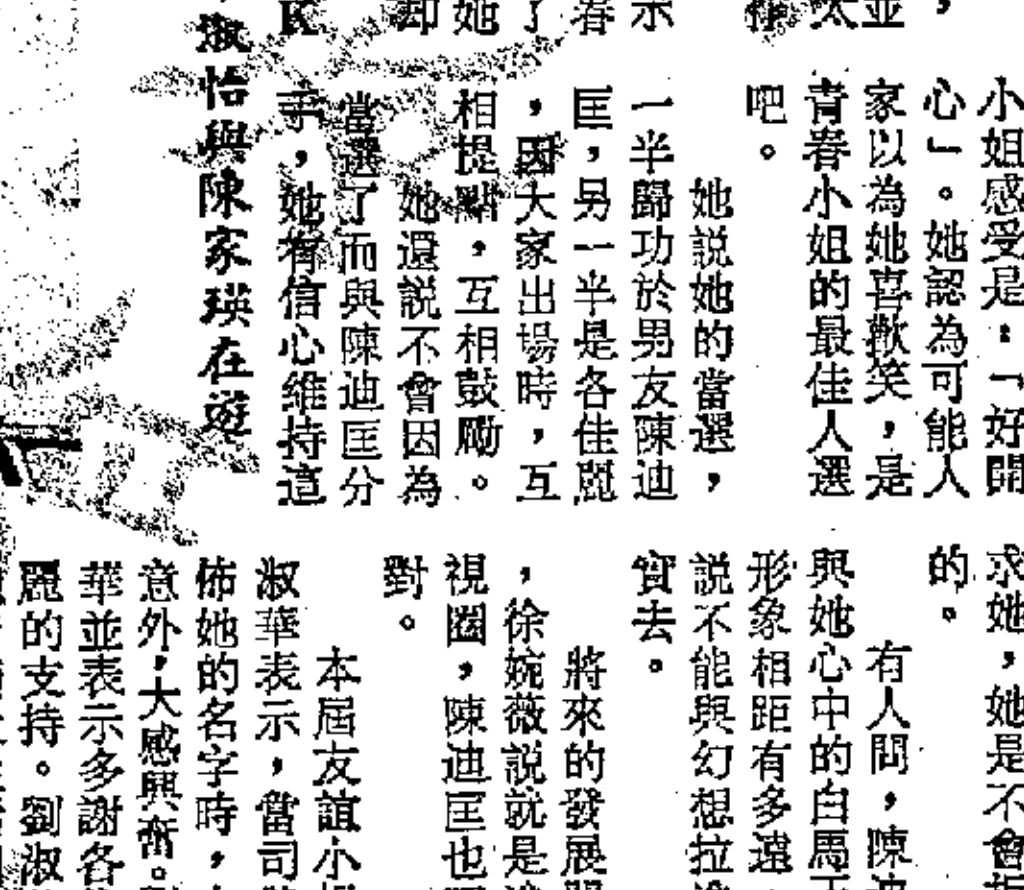 ，
並
太
示
春
了
她
卻
小姐感受是：「好開
心」。她認為可能人
家以為她喜歡笑，是
青春小姐的最佳人選
吧。
她説她的當選，
一半歸功於男友陳迪
匡，另一半是各佳麗
，因大家出場時，互
相提點，互相鼓勵。
她還説不會因為
當選了而與陳迪匡分
手，她有信心維持這
淑怡與陳家瑛在遊
求她，她是不會
的。
有人問，陳迪
與她心中的白馬
形象相距有多遠，
説不能與幻想拉
實去。
將來的發展
，徐婉薇説就是
視圈，陳迪匡也
對。
本屆友誼小
淑華表示，當司
佈她的名字時，
意外，大感興奮。
華並表示多謝各
麗的支持。劉淑